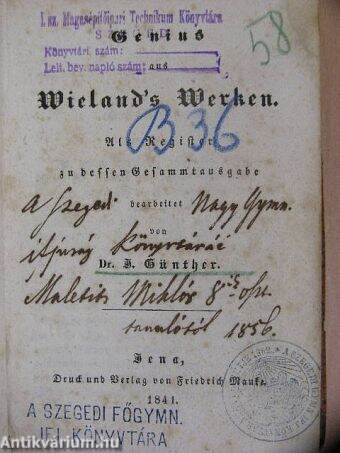 I. sz. Magasépítőipari Technikum Könyvtára
Genius
58
Könyvtári szám:
Lelt. bev. napló szám:
aus
Wieland's Werken.
B 36
Als Register
zu dessen Gesammtausgabe
A szegedi bearbeitet Nagy Gymn.
von
ifjuság könyvtáráé
Dr. J. Günther.
Maletits Miklós 8
tanulótól 1856.
Jena,
Druck und Verlag von Friedrich Mauke.
1841.
A SZEGEDI FŐGYMN.
IFJ. KÖNYVTÁRA
Antikvárium.hu